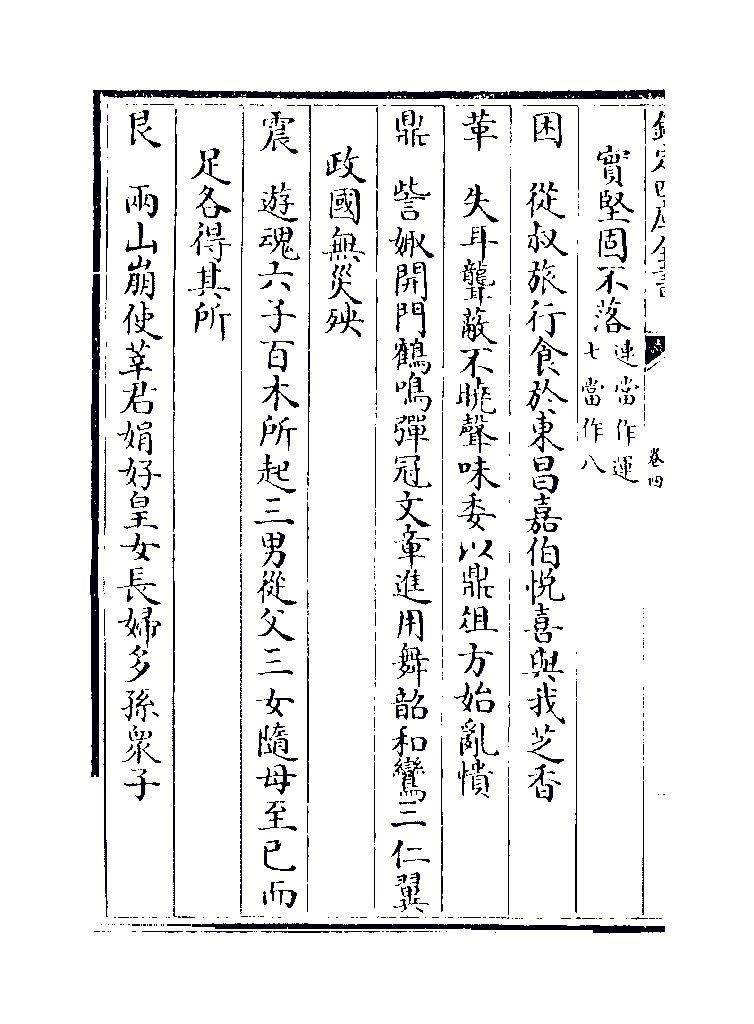 欽定四庫全書
卷四
實堅固不落連當作運
七當作八
困　從叔旅行食於東昌嘉伯悅喜與我芝香
革　失耳聾蔽不曉聲味委以鼎俎方始亂憒
鼎　訾娵開門鶴鳴彈冠文章進用舞韶和鸞三仁翼
政國無災殃
震　遊魂六子百木所起三男從父三女隨母至已而
足各得其所
艮　兩山崩使莘君娟好皇女長婦多孫衆子